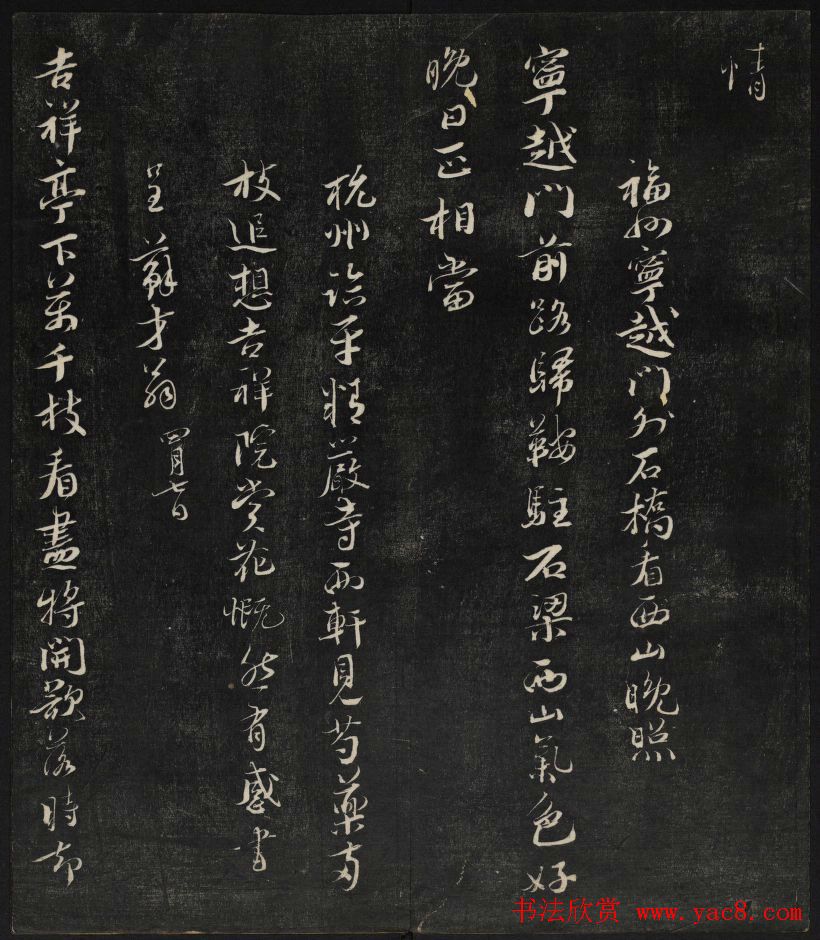 情
福州寧越門外石橋看西山晚照
寧越門前路歸鞍駐石梁西山氣色好
晚日正相當
杭州臨平精嚴寺西軒見芍藥兩
枝追想吉祥院賞花慨然有感書
呈蘇才翁 四月七日
吉祥亭下萬千枝看盡將開欲落時却
书法欣赏 www.yac8.com